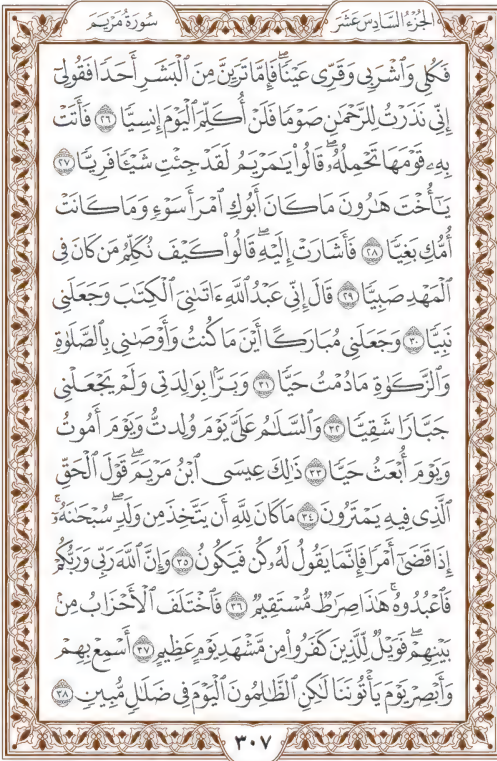 الجزء السادس عشر
سورة مريم
فَكُلِي وَٱشْرَبِي وَقَرِّي عَيْنٗاۖ فَإِمَّا تَرَيِنَّ مِنَ ٱلْبَشَرِ أَحَدٗا فَقُولِيٓ
إِنِّي نَذَرْتُ لِلرَّحْمَٰنِ صَوْمٗا فَلَنْ أُكَلِّمَ ٱلْيَوْمَ إِنسِيّٗا ٢٦ فَأَتَتْ
بِهِۦ قَوْمَهَا تَحْمِلُهُۥۖ قَالُوا۟ يَٰمَرْيَمُ لَقَدْ جِئْتِ شَيْـٔٗا فَرِيّٗا ٢٧
يَٰٓأُخْتَ هَٰرُونَ مَا كَانَ أَبُوكِ ٱمْرَأَ سَوْءٖ وَمَا كَانَتْ
أُمُّكِ بَغِيّٗا ٢٨ فَأَشَارَتْ إِلَيْهِۖ قَالُوا۟ كَيْفَ نُكَلِّمُ مَن كَانَ فِي
ٱلْمَهْدِ صَبِيّٗا ٢٩ قَالَ إِنِّي عَبْدُ ٱللَّهِ ءَاتَىٰنِيَ ٱلْكِتَٰبَ وَجَعَلَنِي
نَبِيّٗا ٣٠ وَجَعَلَنِي مُبَارَكًا أَيْنَ مَا كُنتُ وَأَوْصَٰنِي بِٱلصَّلَوٰةِ
وَٱلزَّكَوٰةِ مَا دُمْتُ حَيّٗا ٣١ وَبَرَّۢا بِوَٰلِدَتِي وَلَمْ يَجْعَلْنِي
جَبَّارٗا شَقِيّٗا ٣٢ وَٱلسَّلَٰمُ عَلَيَّ يَوْمَ وُلِدتُّ وَيَوْمَ أَمُوتُ
وَيَوْمَ أُبْعَثُ حَيّٗا ٣٣ ذَٰلِكَ عِيسَى ٱبْنُ مَرْيَمَۖ قَوْلَ ٱلْحَقِّ
ٱلَّذِي فِيهِ يَمْتَرُونَ ٣٤ مَا كَانَ لِلَّهِ أَن يَتَّخِذَ مِن وَلَدٖۖ سُبْحَٰنَهُۥٓۚ
إِذَا قَضَىٰٓ أَمْرٗا فَإِنَّمَا يَقُولُ لَهُۥ كُن فَيَكُونُ ٣٥ وَإِنَّ ٱللَّهَ رَبِّي وَرَبُّكُمْ
فَٱعْبُدُوهُۚ هَٰذَا صِرَٰطٞ مُّسْتَقِيمٞ ٣٦ فَٱخْتَلَفَ ٱلْأَحْزَابُ مِنۢ
بَيْنِهِمْۖ فَوَيْلٞ لِّلَّذِينَ كَفَرُوا۟ مِن مَّشْهَدِ يَوْمٍ عَظِيمٍ ٣٧ أَسْمِعْ بِهِمْ
وَأَبْصِرْ يَوْمَ يَأْتُونَنَا لَٰكِنِ ٱلظَّٰلِمُونَ ٱلْيَوْمَ فِي ضَلَٰلٖ مُّبِينٖ ٣٨
٣٠٧